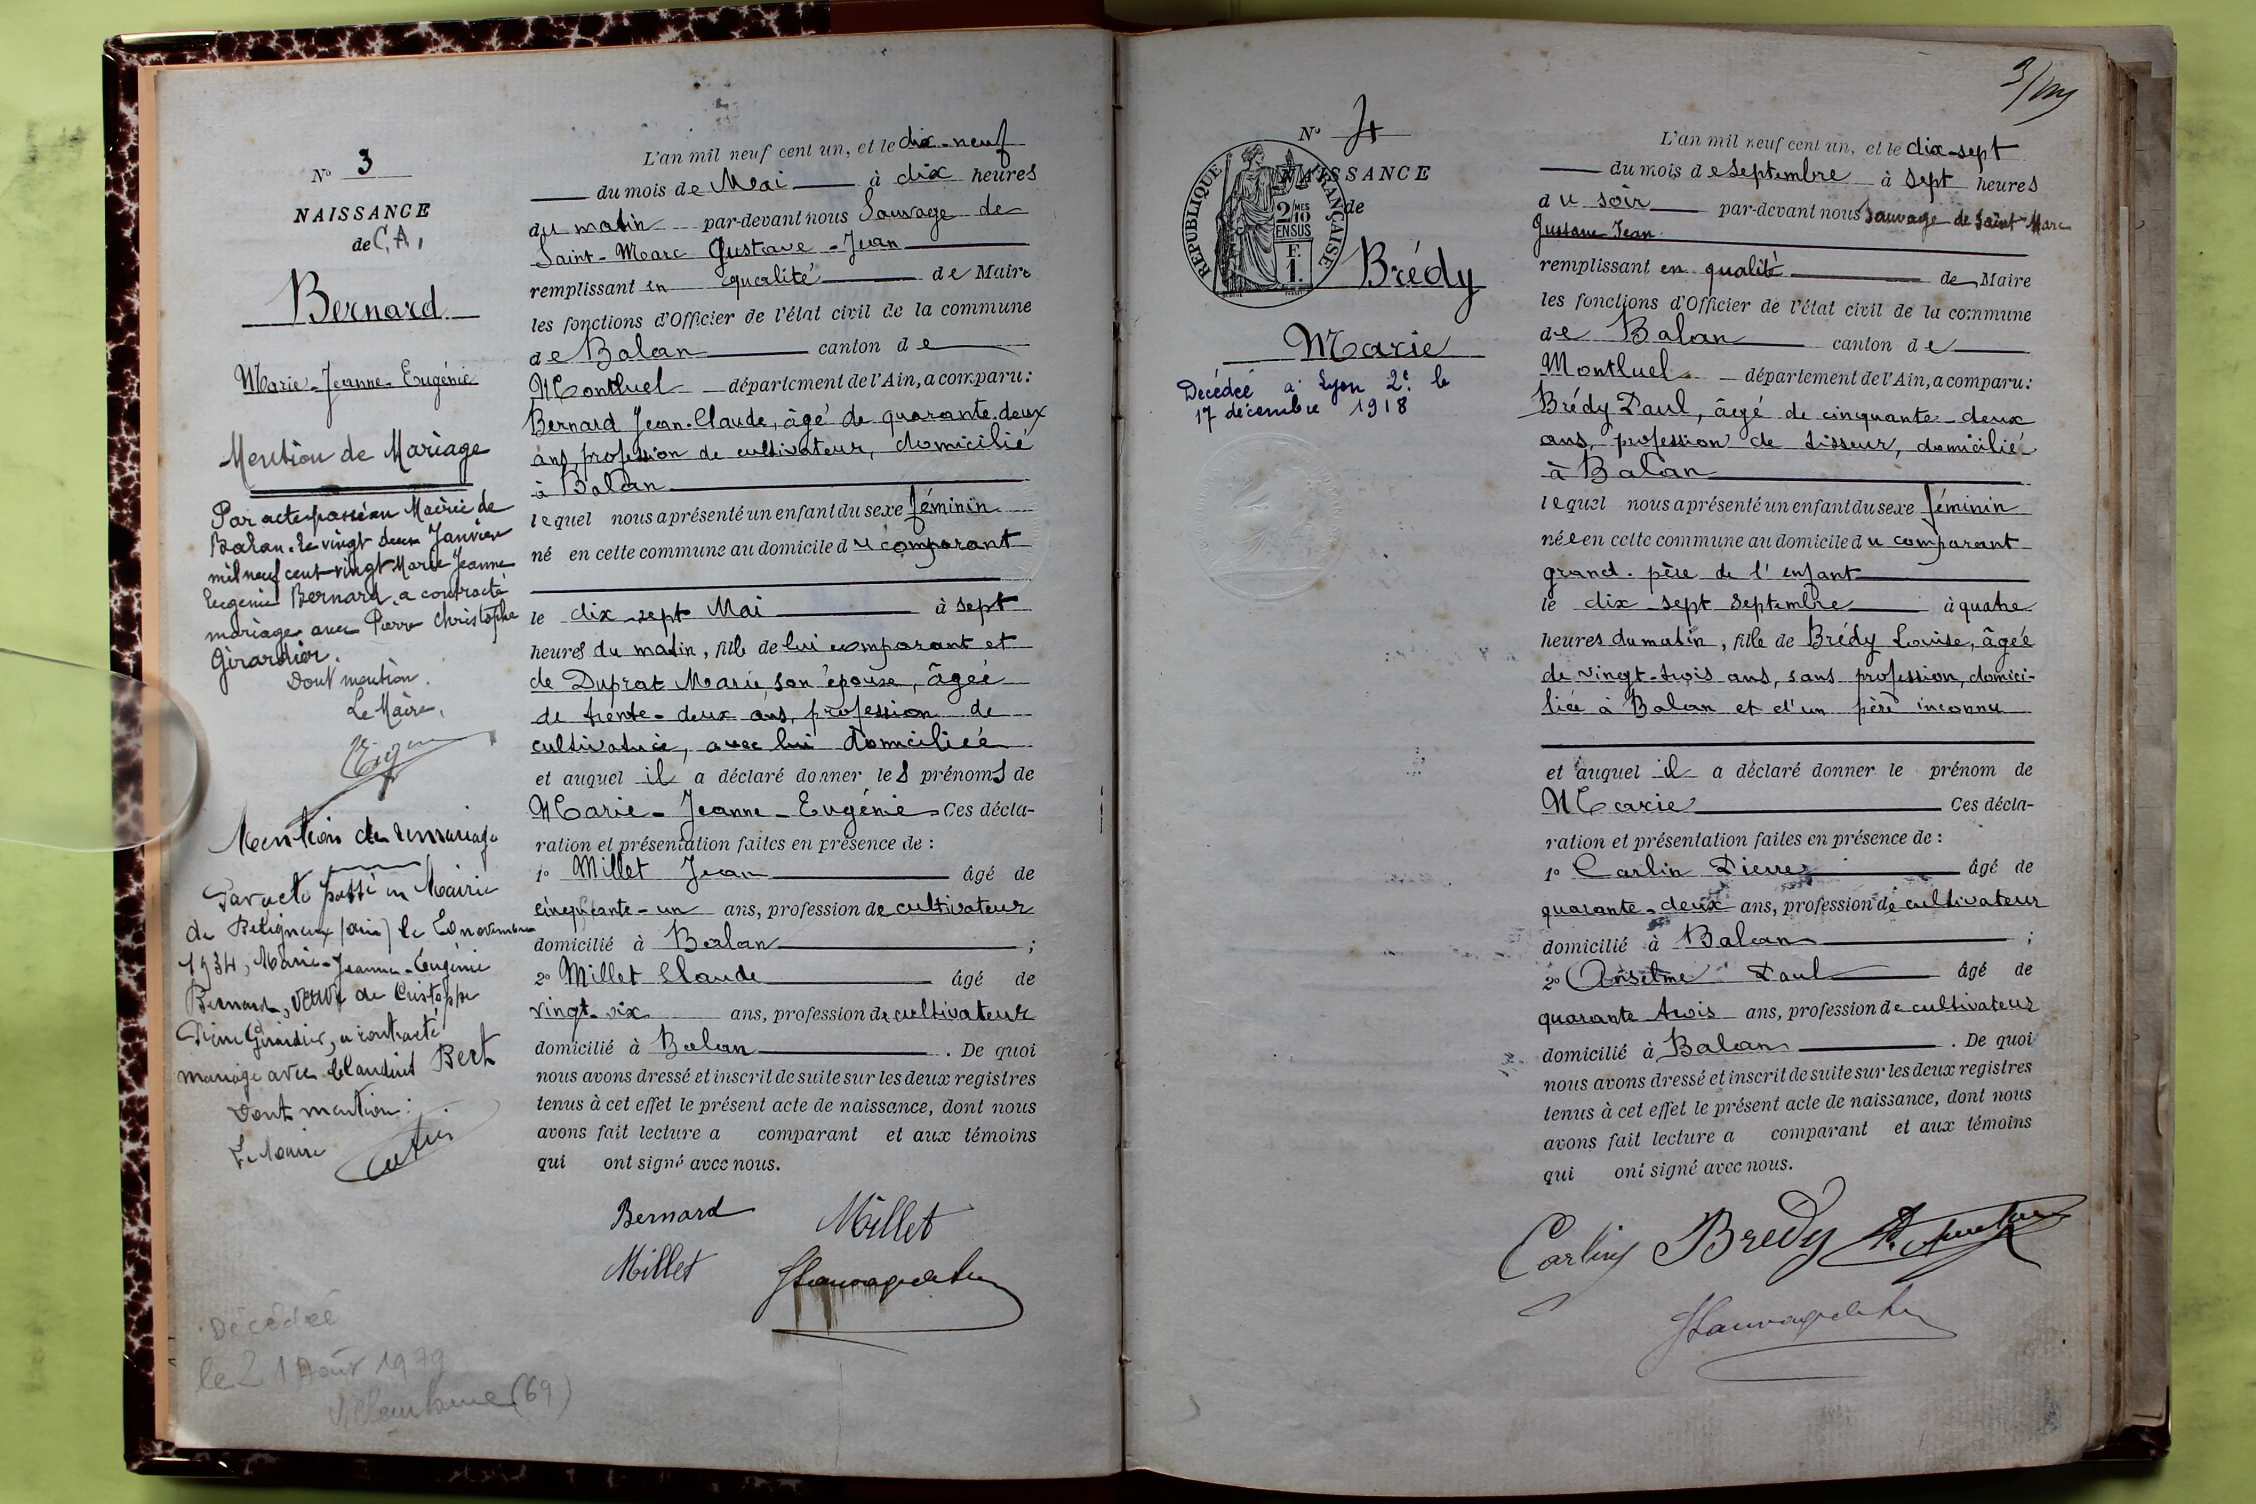 N° 3
NAISSANCE
de C, A,
Bernard
Marie-Jeanne-Eugénie
Mention de Mariage
Par acte passé en Mairie de
Balan, le vingt deux Janvier
mil neuf cent vingt Marie Jeanne
Eugénie Bernard a contracté
mariage avec Pierre Christophe
Girardier.
Dont mention.
Le Maire,
Mention de remariage
Par acte passé en Mairie
de Béligneux (ain) le 20 novembre
1934, Marie-Jeanne-Eugénie
Bernard, veuve de Cristophe
Pierre Girardier, a contracté
mariage avec Claudius Bert
Dont mention:
Le Maire
Décédée
le 21 Août 1979
Villeurbanne (69)
L'an mil neuf cent un, et le dix-neuf
du mois de Mai à dix heures
du matin par-devant nous Sauvage de
Saint-Marc Gustave-Jean
remplissant en qualité de Maire
les fonctions d'Officier de l'état civil de la commune
de Balan canton de
Montluel département de l'Ain, a comparu:
Bernard Jean-Claude, âgé de quarante-deux
ans, profession de cultivateur, domicilié
à Balan
lequel nous a présenté un enfant du sexe féminin
né en cette commune au domicile du comparant
le dix-sept Mai à sept
heures du matin, fille de lui comparant et
de Duprat Marie, son épouse, âgée
de trente-deux ans, profession de
cultivatrice, avec lui domiciliée
et auquel il a déclaré donner les prénoms de
Marie-Jeanne-Eugénie Ces décla-
ration et présentation faites en présence de :
1° Millet Jean âgé de
cinquante-un ans, profession de cultivateur
domicilié à Balan ;
2° Millet Claude âgé de
vingt-six ans, profession de cultivateur
domicilié à Balan . De quoi
nous avons dressé et inscrit de suite sur les deux registres
tenus à cet effet le présent acte de naissance, dont nous
avons fait lecture a comparant et aux témoins
qui ont signé avec nous.
Bernard Millet
Millet
3/
N° 4
NAISSANCE
de
RÉPUBLIQUE FRANÇAISE
2/10 MES
EN SUS
F.
1.
Brédy
Marie
Décédée à Lyon 2e le
17 décembre 1918
L'an mil neuf cent un, et le dix-sept
du mois de Septembre à sept heures
du soir par-devant nous Sauvage de Saint-Marc
Gustave Jean
remplissant en qualité de Maire
les fonctions d'Officier de l'état civil de la commune
de Balan canton de
Montluel département de l'Ain, a comparu:
Brédy Paul, âgé de cinquante-deux
ans, profession de tisseur, domicilié
à Balan
lequel nous a présenté un enfant du sexe féminin
née en cette commune au domicile du comparant
grand-père de l'enfant
le dix-sept Septembre à quatre
heures du matin, fille de Brédy Louise, âgée
de vingt-trois ans, sans profession, domici-
liée à Balan et d'un père inconnu
et auquel il a déclaré donner le prénom de
Marie Ces décla-
ration et présentation faites en présence de :
1° Carlin Pierre âgé de
quarante-deux ans, profession de cultivateur
domicilié à Balan ;
2° Anselme Paul âgé de
quarante trois ans, profession de cultivateur
domicilié à Balan . De quoi
nous avons dressé et inscrit de suite sur les deux registres
tenus à cet effet le présent acte de naissance, dont nous
avons fait lecture a comparant et aux témoins
qui ont signé avec nous.
Carlin Bredy